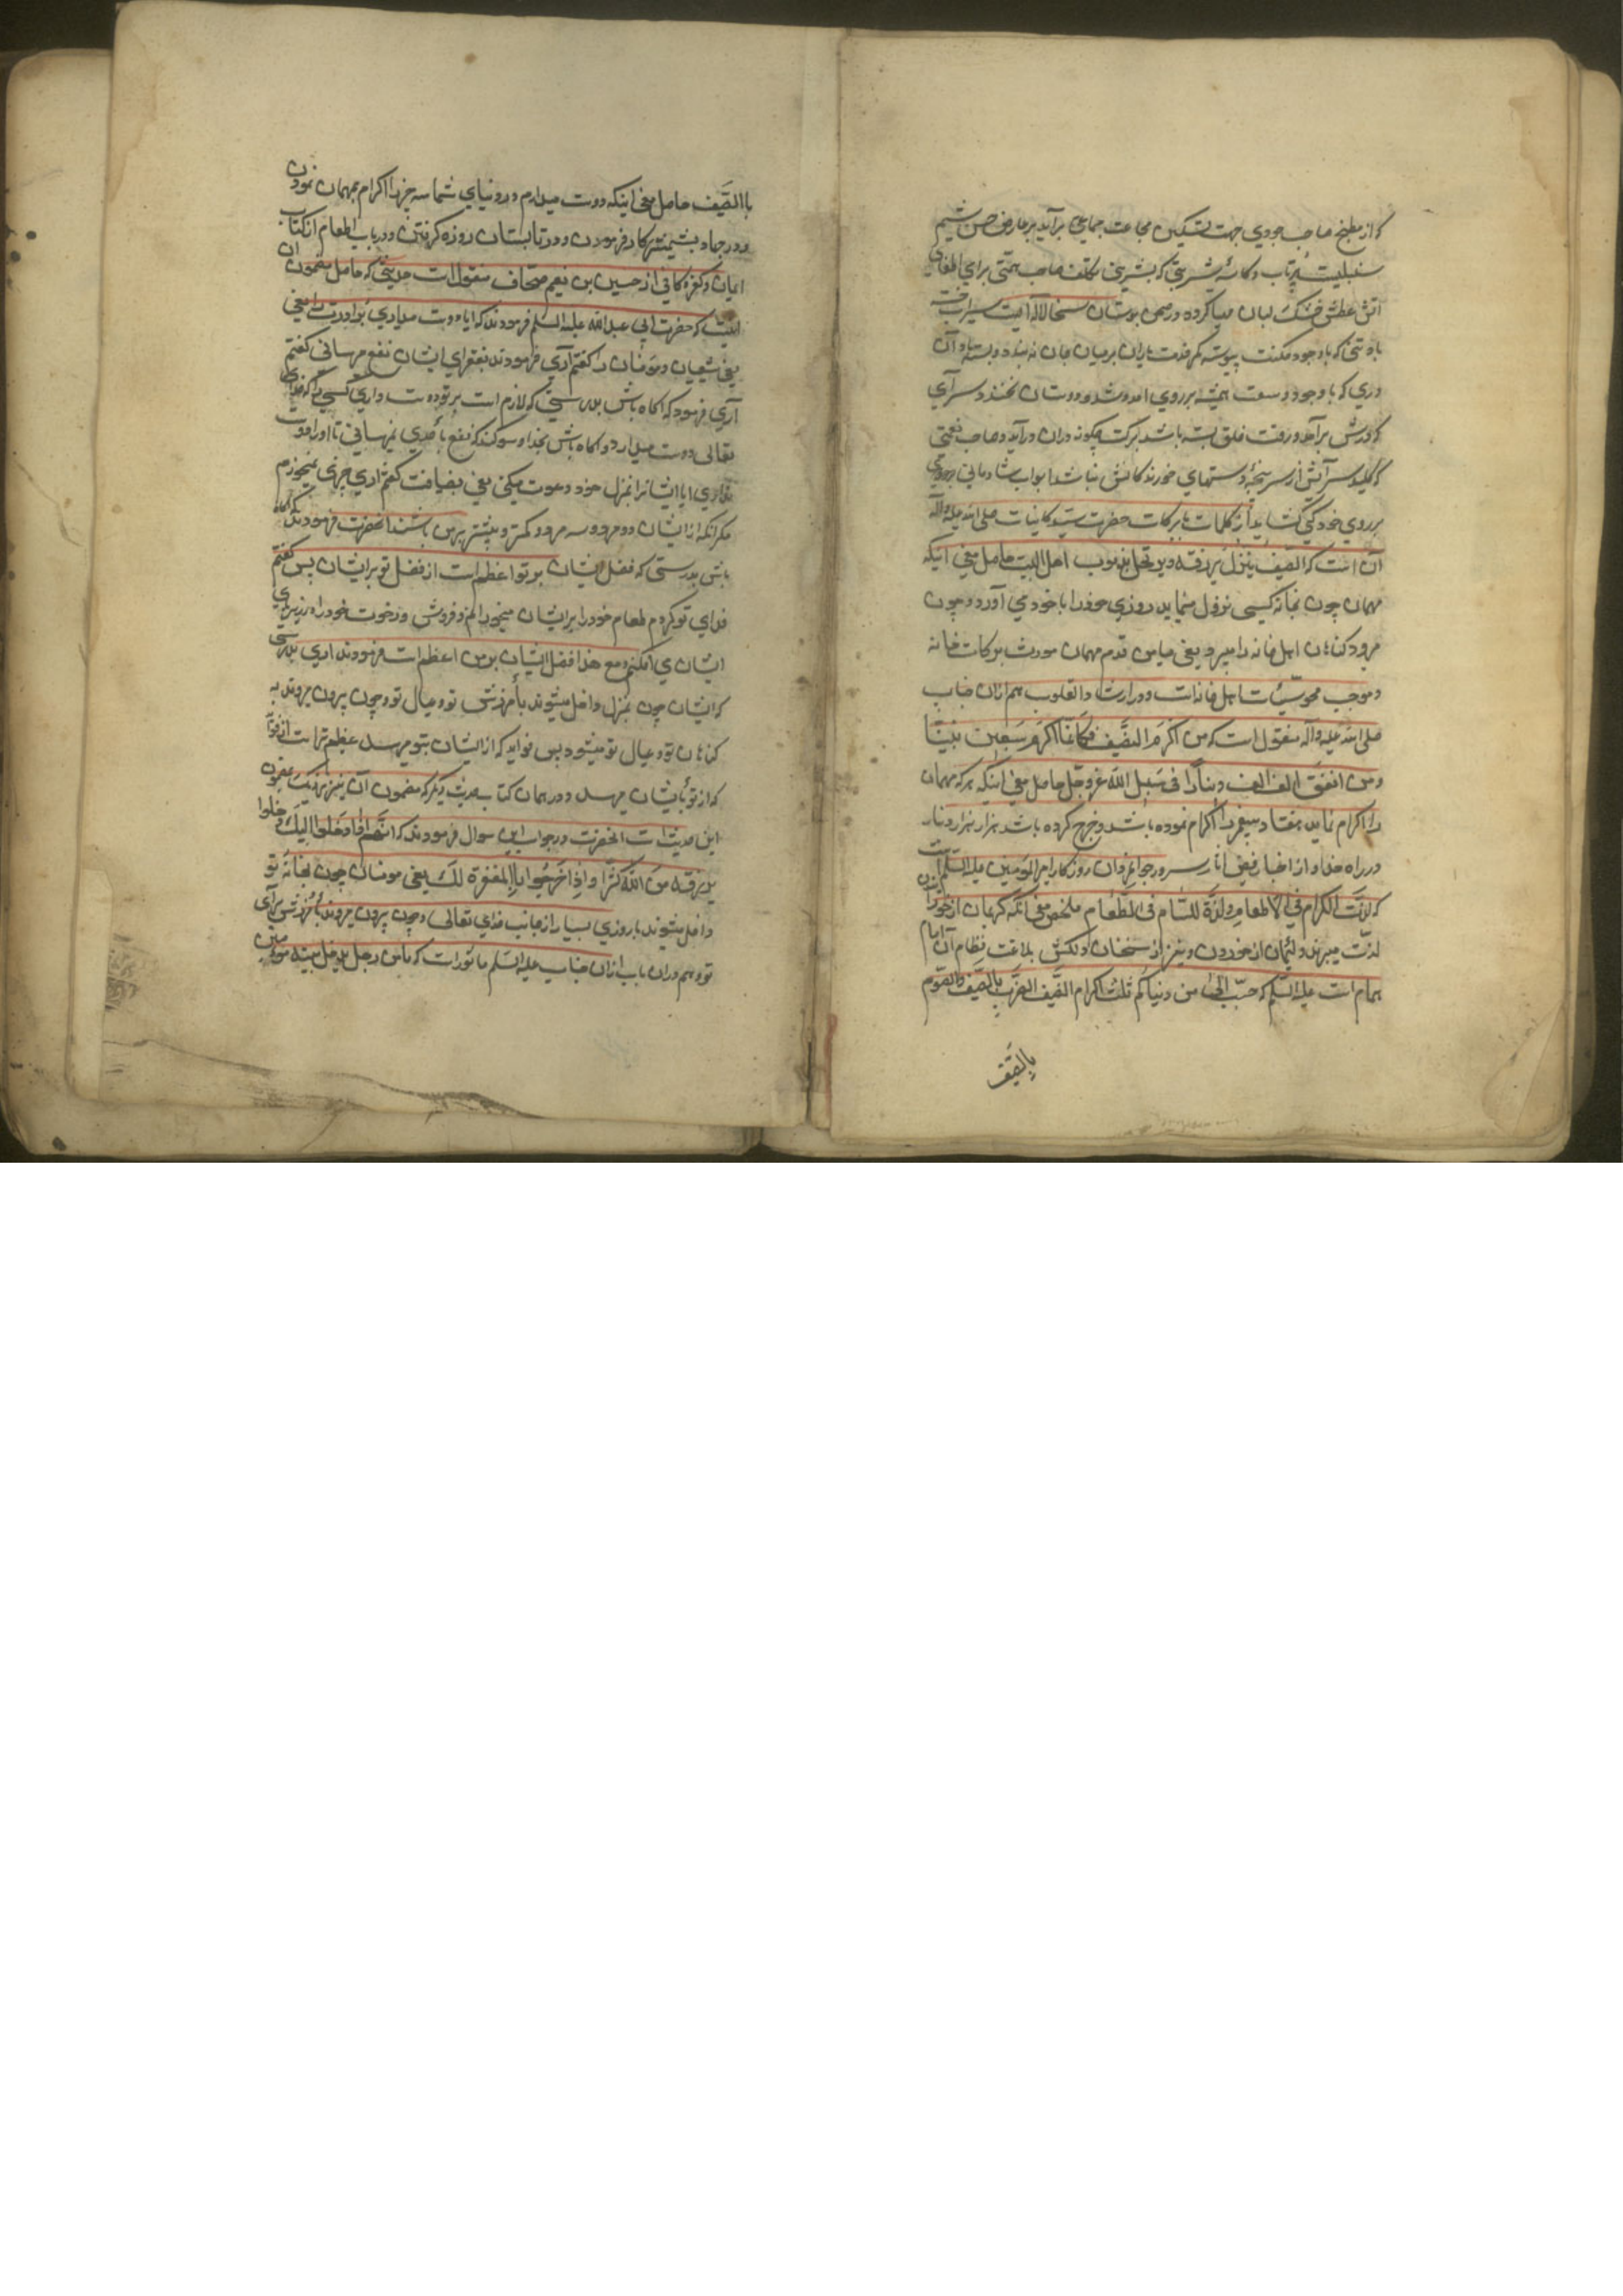 که از مطبخ صاحب جودی جهت تسکین مجاعت جماعتی برآید بر عارض حسن شیم
سنبلیست پرتاب و کاسهٔ شربتی که بشیرینی تکلف صاحب همتی برای اطفای
آتش عطش خشک لبان مهیا کرده در چمن بوستان سخا لاله ایست سیراب
با وجود مکنت پیوسته کمر خدمت یاران بر میان جان نه بندد بسته باد آن
دری که با وجود وسعت همیشه بر روی آمد و شد دوستان نخندد سرای
که درش بر آمد و رفت خلق بسته باشد برکت چگونه دران درآید و صاحب نعمتی
که کلید سرایش از سر پنجهٔ دستهای خورندگانش نباشد ابواب شادمانی
بر روی خود کی گشاید از کلمات با برکات حضرت سید کاینات صلی الله علیه وآله
آن است که الضیف ینزل برزقه ویرتحل بذنوب اهل البیت حاصل معنی آنکه
مهمان چون بخانه کسی نزول مینماید روزی خود را با خود می آورد و چون
میرود گناهان اهل خانه را میبرد یعنی میامن قدم مهمان مورث برکات خانه
و موجب محو سیّئات اهل خانه است و در ارشاد القلوب هم ازان جناب
صلی الله علیه وآله منقول است که من اکرم الضَّیف فکانّما اکرم سبعین نبیّا
ومن انفق الف الف دینارًا فی سبیل الله عزوجل حاصل معنی اینکه هر که مهمان
را اکرام نماید هفتاد پیغمبر را اکرام نموده باشد و خرج کرده باشد هزار هزار دینار
در راه خدا و از اخبار فیض آثار سرور جوانمردان روزگار امیرالمؤمنین علیه السّلم است
که لذّت الکرام فی الاطعام ولذّة اللئام فی الطّعام ملخص معنی آنکه کریمان از خورانیدن
لذّت میبرند و لئیمان از خوردن و نیز از سخنان دلکش بلاغت نظام آن امام
همام است علیه السّلم که حبّب الیّ من دنیاکم ثلث اکرام الضَّیف الضرب بالسّیف والصّوم
بالصّیف
با الصَّیف حاصل معنی اینکه دوست میدارم در دنیای شما سه چیز را اکرام بمهمان نمودن
و در جهاد بشمشیر کار فرمودن و در تابستان روزه گرفتن و در باب اطعام از کتاب
ایمان و کفر کافی از حسین بن نعیم صحاف منقول است حدیثی که حاصل مضمون آن
اینست که حضرت ابی عبدالله علیه السلم فرمودند که ایا دوست میداری برادرت را یعنی
یعنی شیعیان و مؤمنان را گفتم آری فرمودند بفقرای ایشان نفع میرسانی گفتم
آری فرمود که آگاه باش بدرستی که لازم است بر تو دوست داری کسی را که خدای
تعالی دوست میدارد و آگاه باش بخدا سوگند که نفع باحدی نمیرسانی تا او را دوست
نداری ایا ایشانرا بمنزل خود دعوت میکنی یعنی بضیافت گفتم آری چیزی نمیخورم
مگر آنکه از ایشان دو مرد و سه مرد و کمتر و بیشتر پیش من باشند آنحضرت فرمودند که آگاه
باش بدرستی که فضل ایشان بر تو اعظم است از فضل تو بر ایشان پس گفتم
فدای تو گردم طعام خود را بر ایشان میخورانم و فروش و رخوت خود را در زیر پای
ایشان می افکنم و مع هذا فضل ایشان بر من اعظم است فرمودند آری بدرستی
که ایشان چون بمنزل داخل میشوند بآمرزش تو و عیال تو و چون بیرون میروند به
گناهان تو و عیال تو میشود پس فواید که از ایشان بتو میرسد عظیم تر است از
که از تو بایشان میرسد و در همان کتاب حدیث دیگر که مضمون آن نیز نزدیک بمضمون
این حدیث است آنحضرت در جواب این سوال فرمودند که انّهم اذا دخلوا الیک دخلوا
برزقه من الله کثرا واذا خرجوا بالمغفرة لک یعنی مومنان چون بخانهٔ تو
داخل میشوند با روزی بسیار از جانب خدای تعالی و چون بیرون میروند بآمرزش برای
تو و هم دران باب ازان جناب علیه السّلم ماثور است که ما من رجل یدخل بیته مومنین